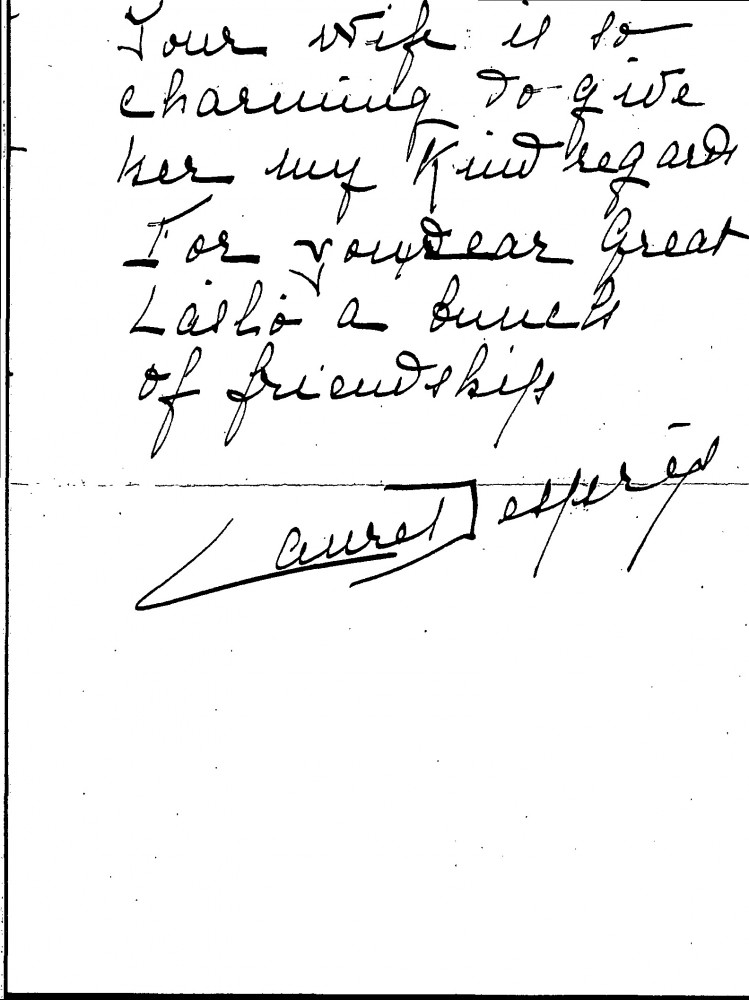 Your wife is so
charming do give
her my Kind regards
For you dear Great
Làslò a bunch
of friendships
Laure Desprès